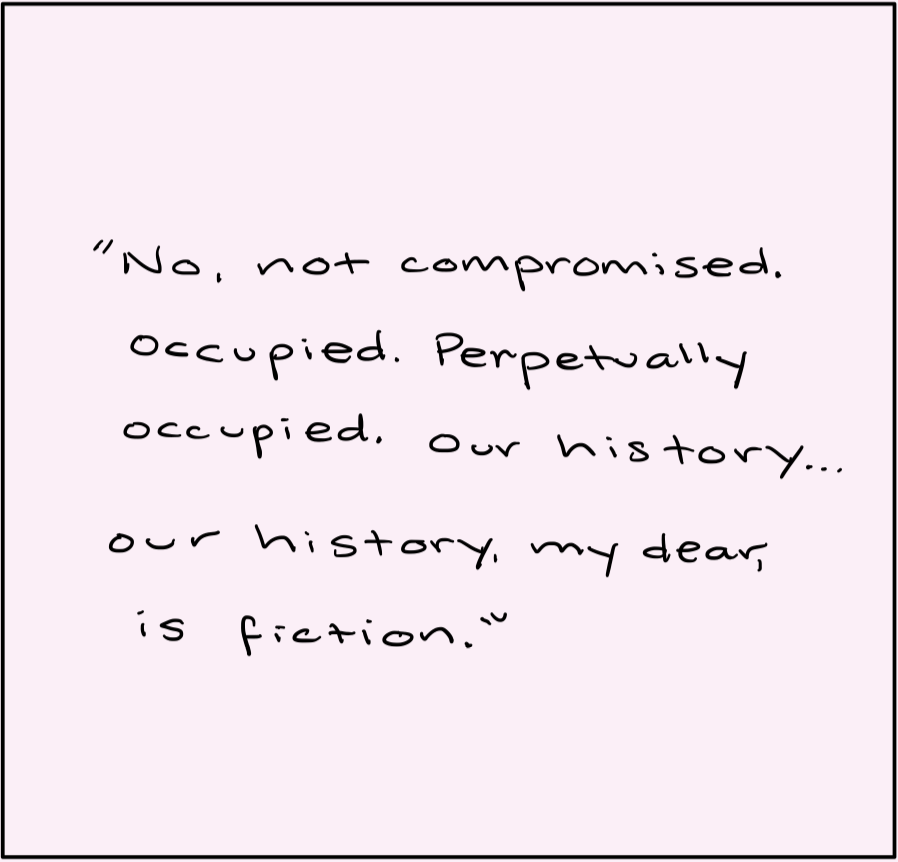 "No, not compromised.
Occupied. Perpetually
occupied. Our history...
our history, my dear,
is fiction."